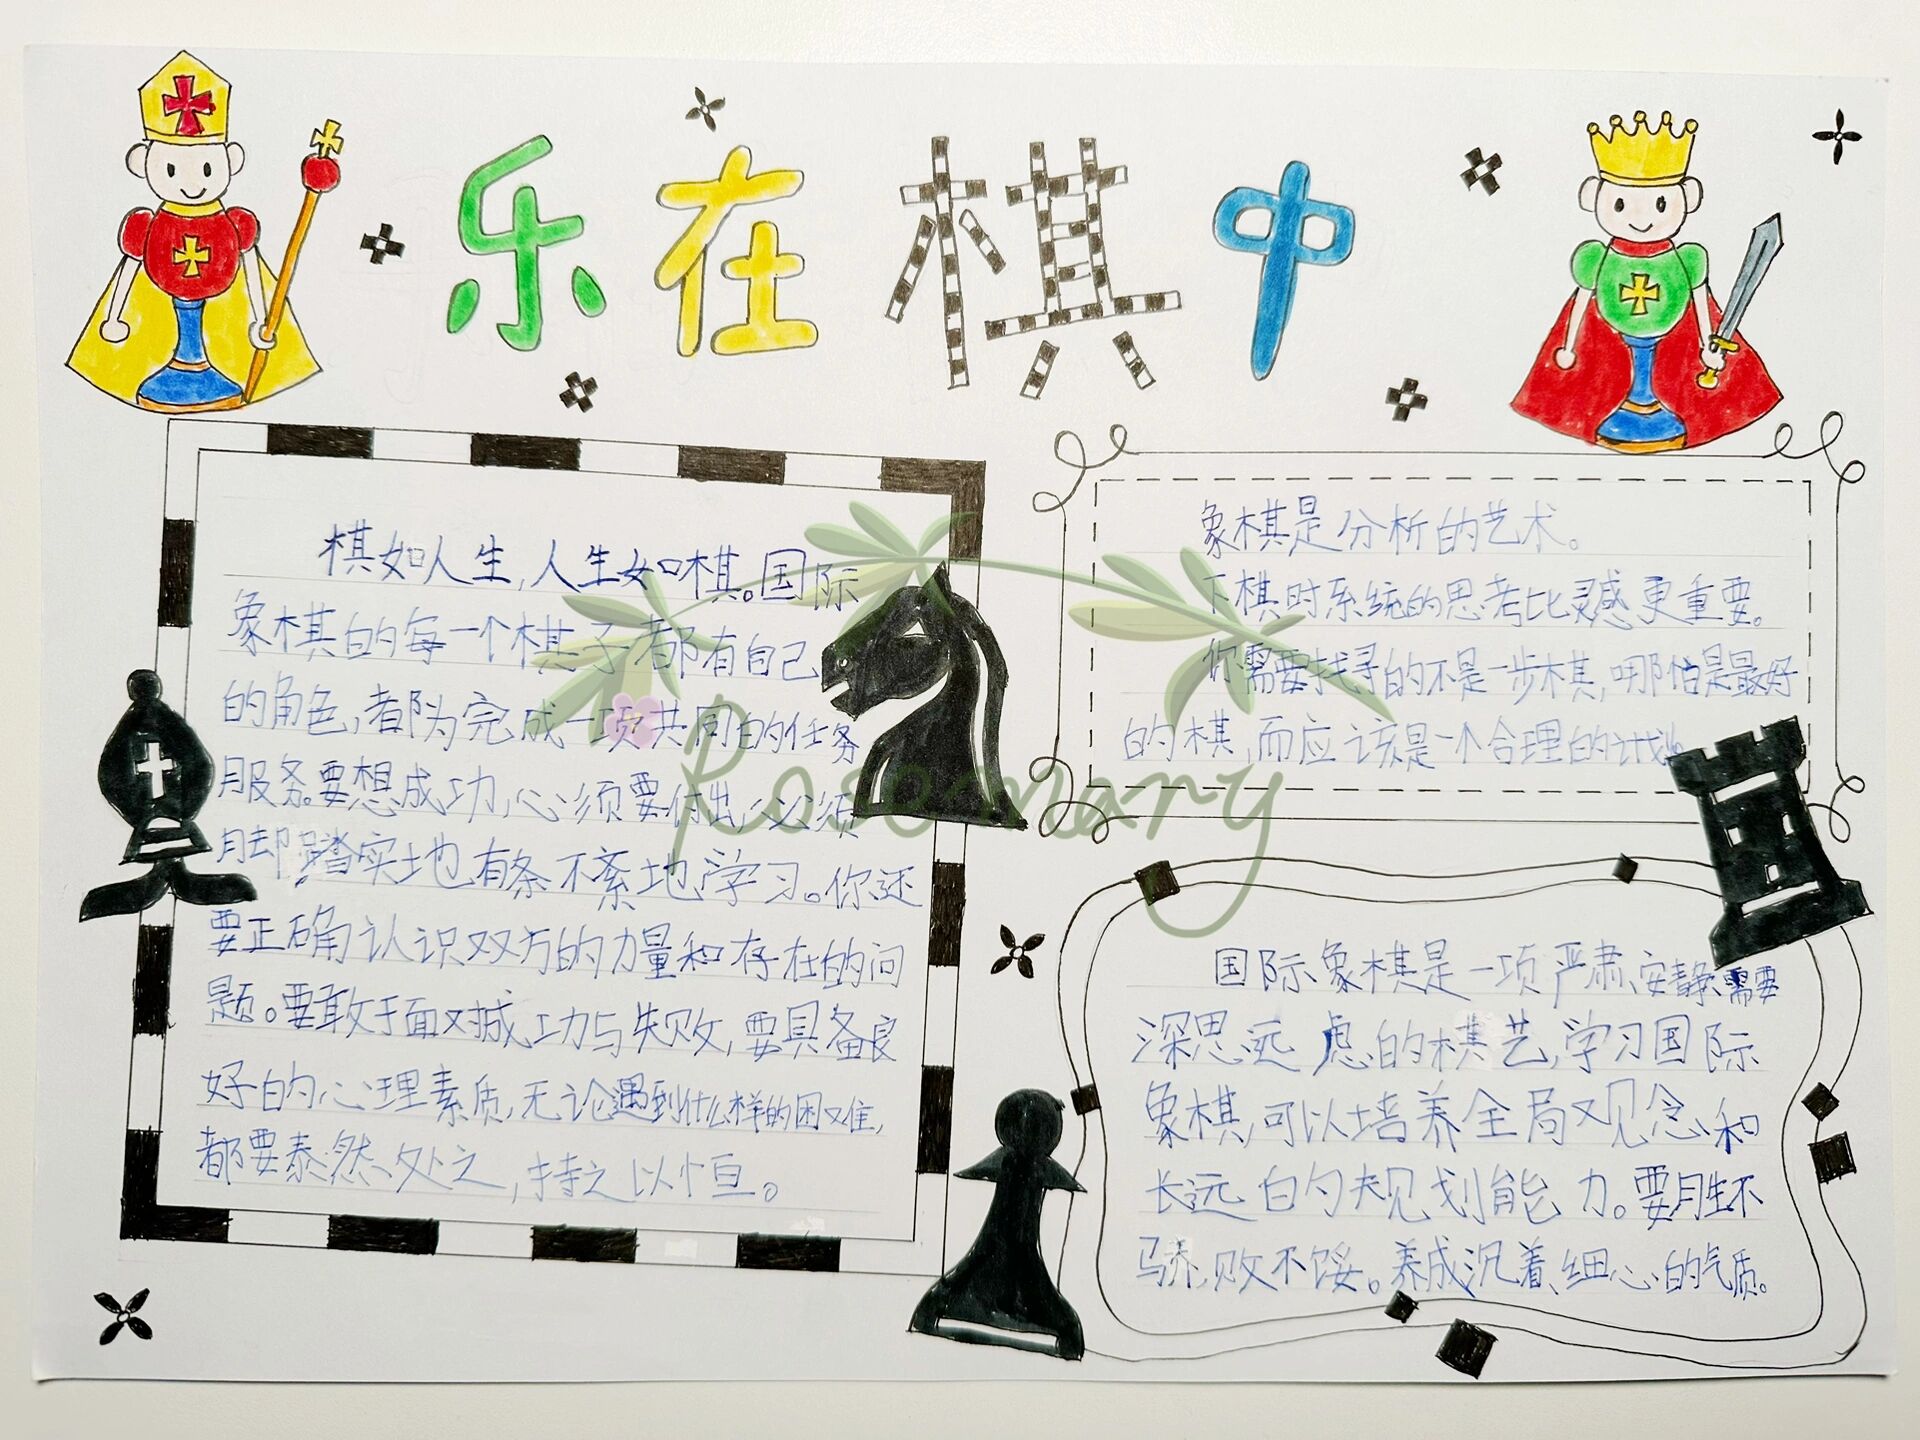 乐在棋中
棋如人生,人生如棋。国际
象棋的每一个棋子都有自己
的角色,都为完成一项共同的任务
服务。要想成功,必须要付出,必须
脚踏实地有条不紊地学习。你还
要正确认识双方的力量和存在的问
题。要敢于面对成功与失败,要具备良
好的心理素质,无论遇到什么样的困难,
都要泰然处之,持之以恒。
象棋是分析的艺术。
下棋时系统的思考比灵感更重要。
你需要找寻的不是一步棋,哪怕是最好
的棋,而应该是一个合理的计划。
国际象棋是一项严肃、安静、需要
深思远虑的棋艺,学习国际
象棋,可以培养全局观念和
长远的规划能力。要胜不
骄,败不馁。养成沉着、细心的气质。
Rosemary